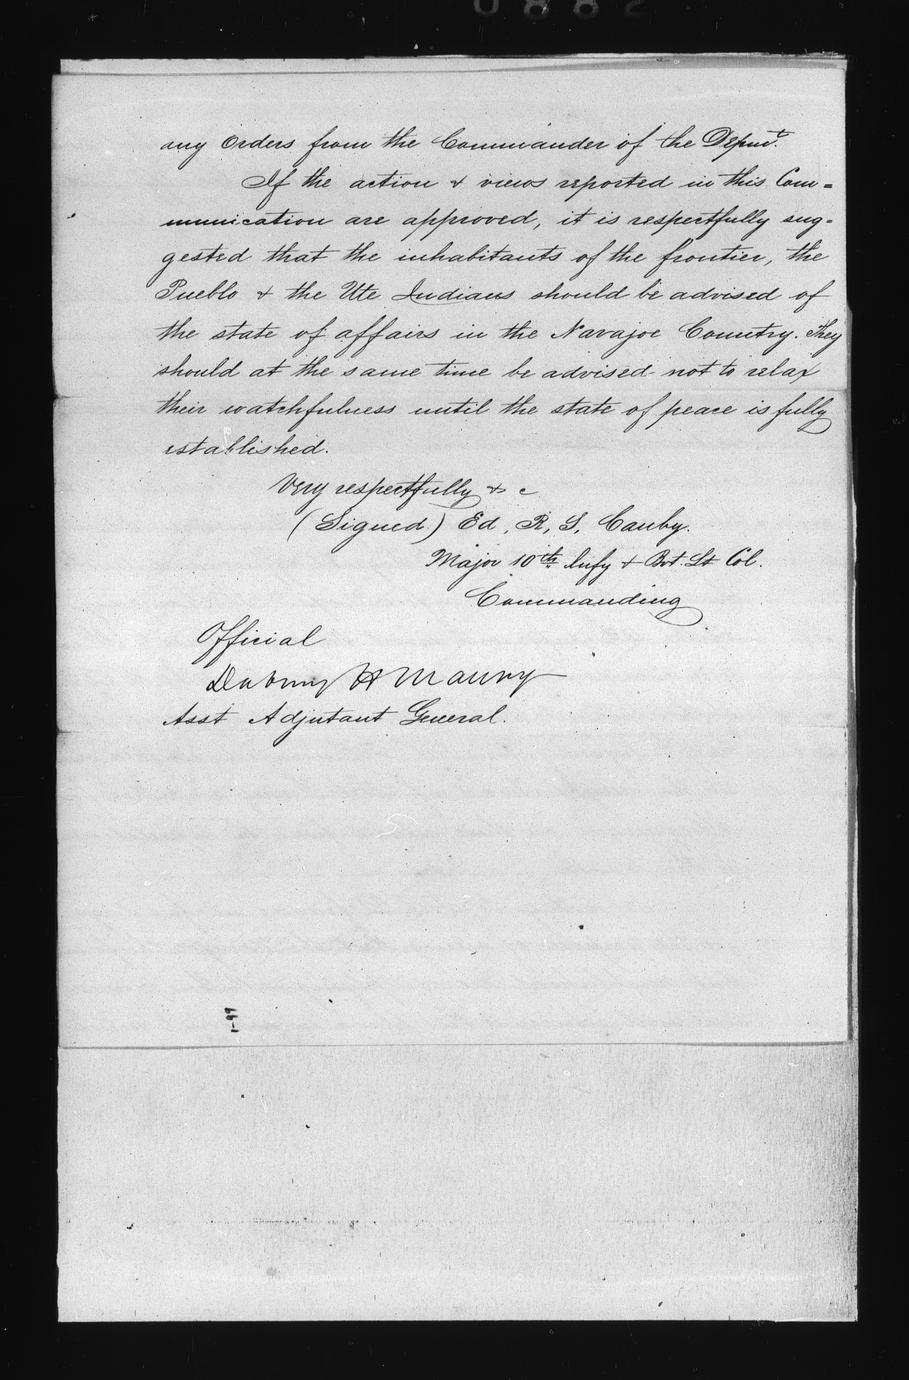 0882
any orders from the Commander of the Depmt.
If the action & views reported in this Com=
munication are approved, it is respectfully sug=
gested that the inhabitants of the frontier, the
Pueblo & the Ute Indians should be advised of
the state of affairs in the Navajoe Country. They
should at the same time be advised not to relax
their watchfulness until the state of peace is fully
established.
Very respectfully & c
(Signed) Ed. R. S. Canby.
Major 10th Infy & Bvt. Lt Col.
Commanding
Official
Dabney H Maury
Asst Adjutant General.
1-99